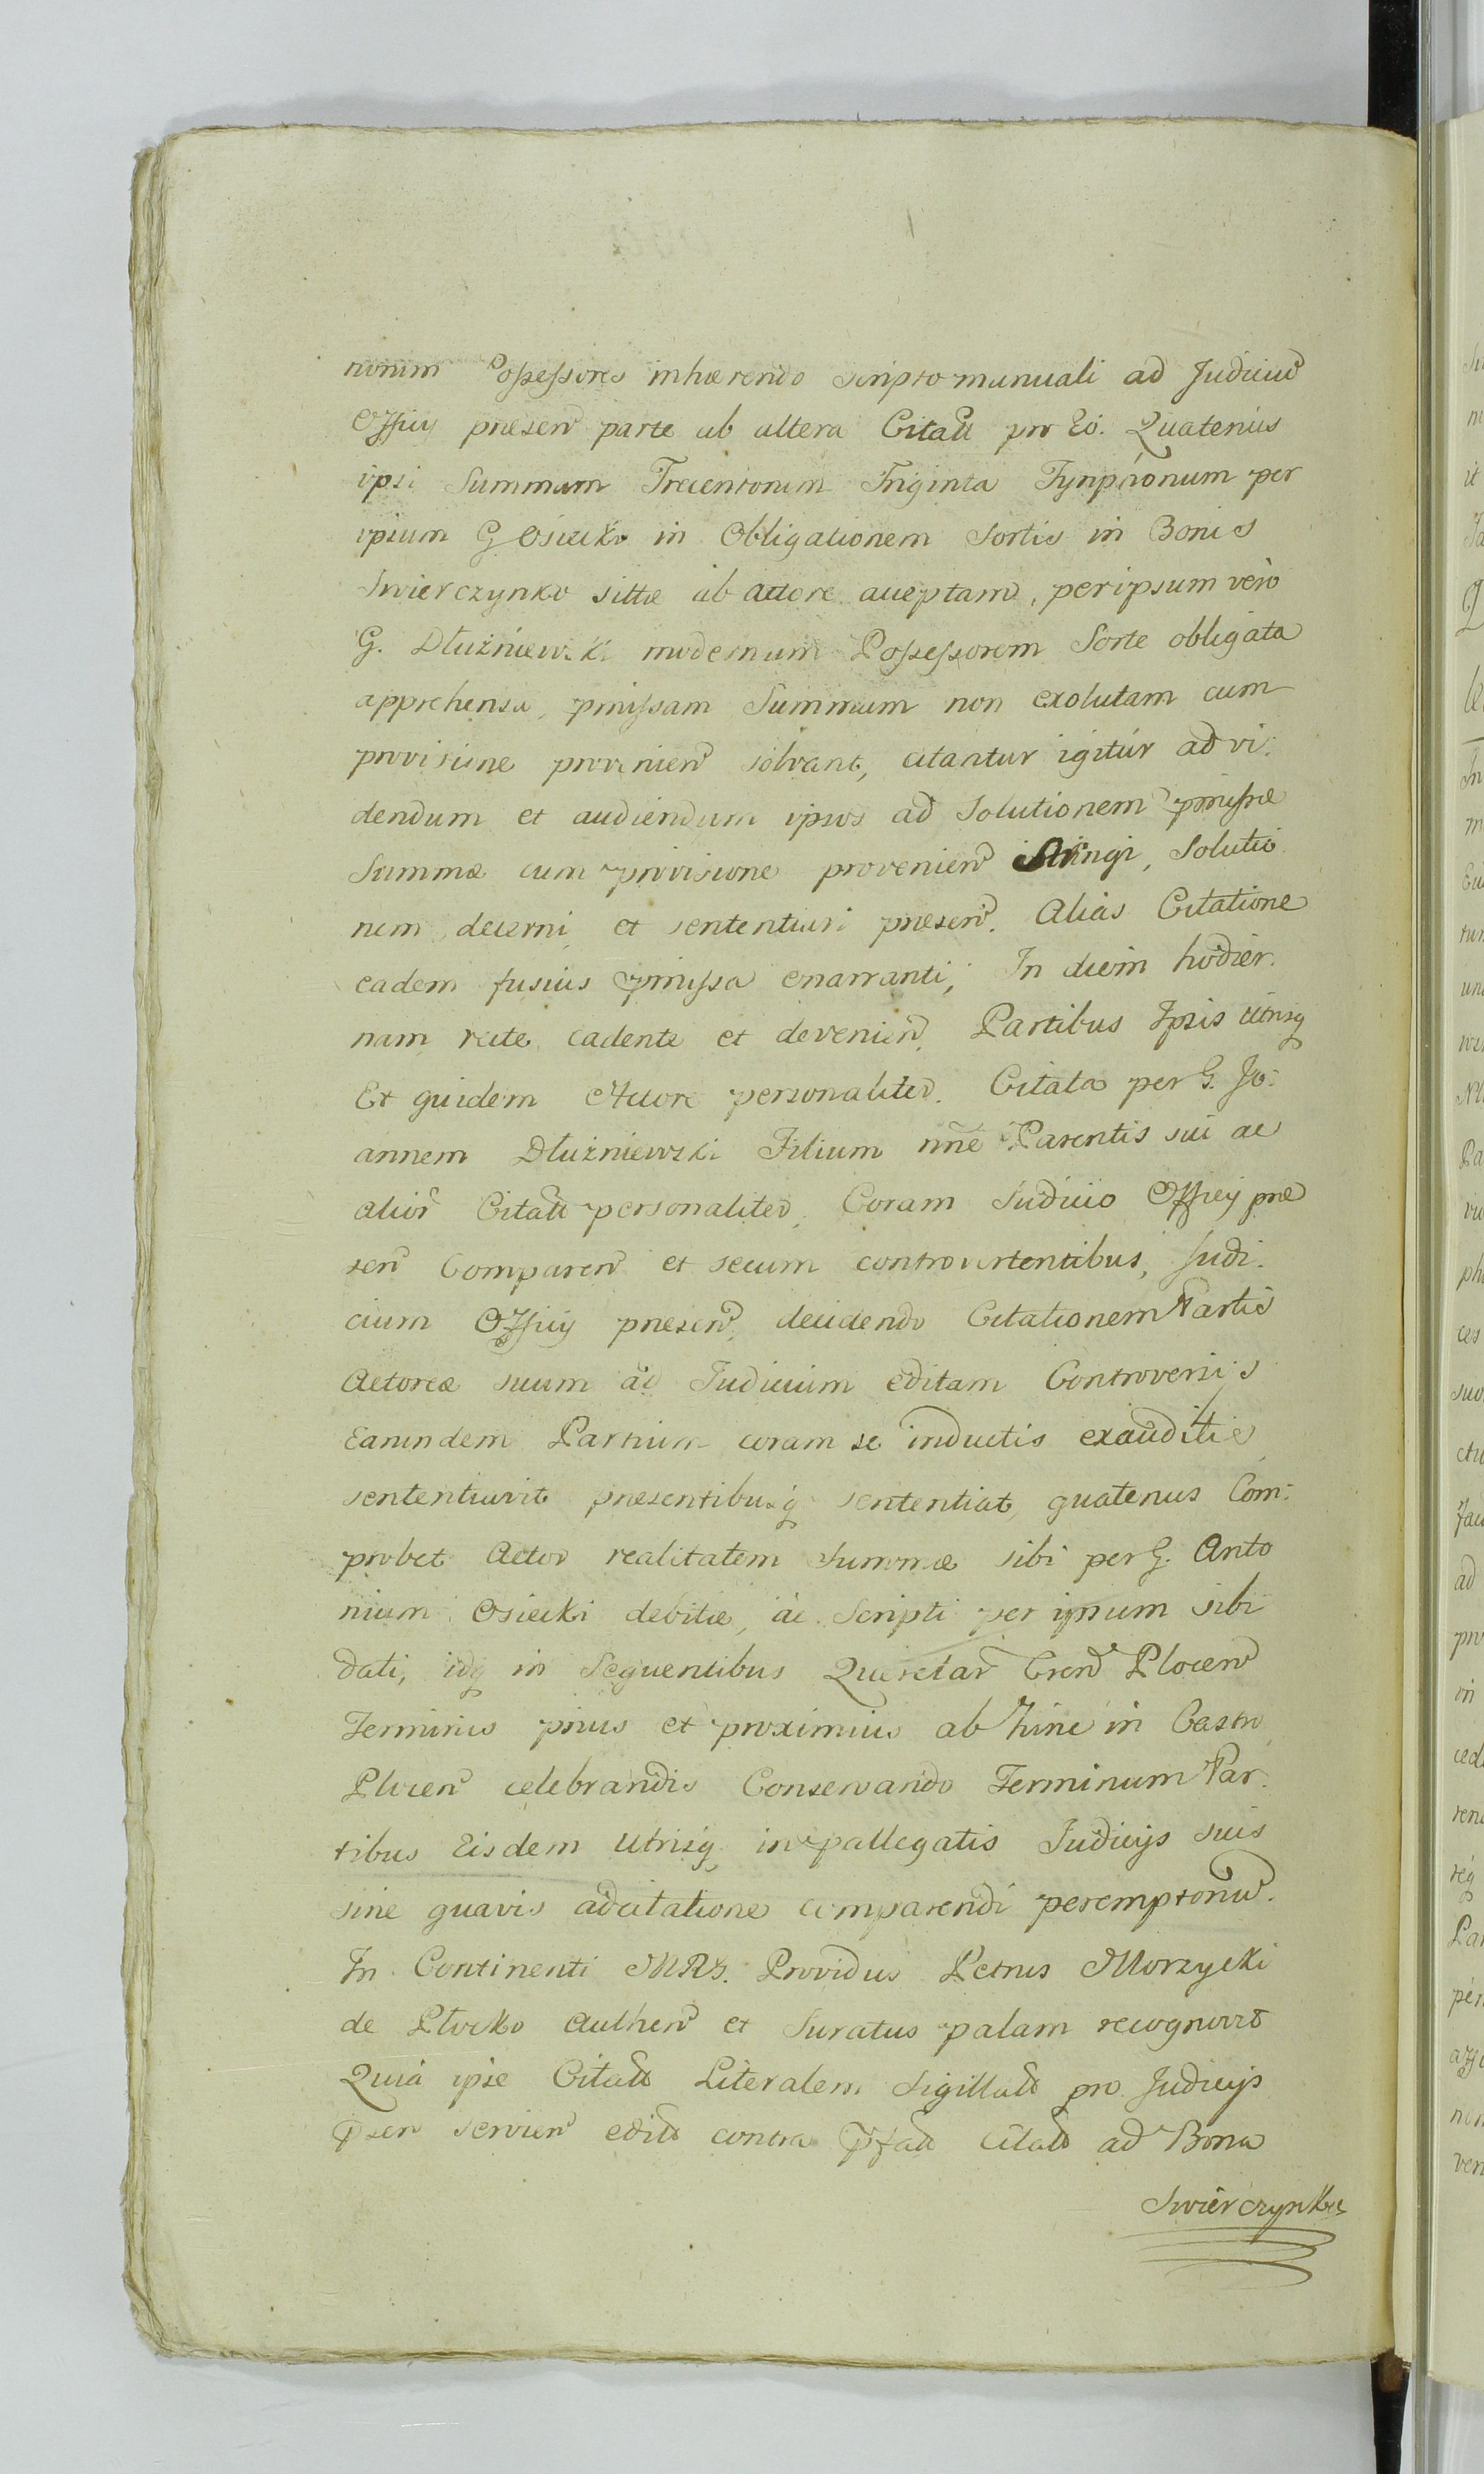 norum Possessores inhærendo scripto manuali ad Judiciũ
Officij præsenẽ parte ab altera Citatt pro Eo. Quatenus
ipsi Summam Trecentorum Triginta Tynphonum per
ipsum G Osiecki in Obligationem Sortis in Bonis
Swierczynko sittæ ab Actore acceptam, per ipsum vero
G. Dłużniewski modernum Possessorem Sorte obligata
apprehensa, pmissam Summam non exolutam cum
provisione provenienẽ solvant, citantur igitur ad vi:
dendum et audiendum ipsos ad Solutionem pmissæ
Summæ cum provisione provenienẽ stringi, Solutio
nem decerni et sententiari præsenẽ. Alias Citatione
eadem fusius pmissa enarranti, In diem hodier.
nam recte cadente et devenienẽ, Partibus Ipsis utrisq
Et quidem Actore personaliter. Citata per G. Jo:
annem Dłużniewski Filium nñe Parentis sui ac
alior Citatt personaliter, Coram Judicio Officij præ
senẽ Comparenẽ et secum controvertentibus, Judi.
cium Officij præsenẽ, decidendo Citationem Partis
Actoreæ suum ad Judicium editam Controversijs
Earumdem Partium coram se inductis exauditis
sententiavit præsentibusq sententiat, quatenus Com:
probet Actor realitatem Summæ sibi per G. Anto
nium Osiecki debitæ, ac Scripti per ipsum sibi
dati, idq in Sequentibus Querelar Cren Plocenẽ
Terminis prius et proximius ab hinc in Castro
Plocenẽ celebrandis Conservando Terminum Par.
tibus Eisdem Utrisq in pallegatis Judicijs suis
sine quavis adcitatione comparendi peremptoriũ.
In Continenti Mrs. Providus Petrus Morzycki
de Płocko Authenẽ et Juratus palam recognovit
Quia ipse Citatt Literalem Sigillatt pro Judicijs
psen servienẽ editt contra pfatt Citatt ad Bona
Swierczynko